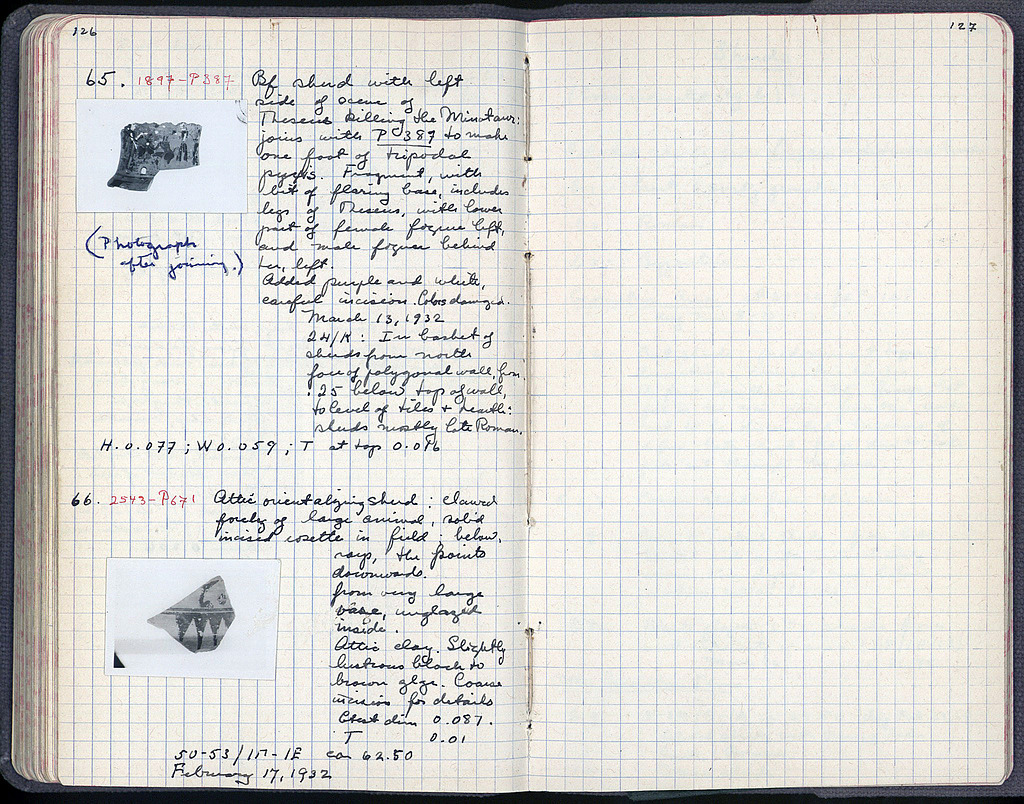 126
127
65. 1897-P387 Bf sherd with left
side of scene of
Theseus killing the Minotaur:
joins with P 389 to make
one foot of tripodal
pyxis. Fragment, with
bit of flaring base, includes
legs of Theseus, with lower
part of female figure left,
and male figure behind
her, left.
(Photograph
after joining.)
Added purple and white,
careful incision. Colors damaged.
March 13, 1932
24/K: In basket of
sherds from north
face of polygonal wall, from
.25 below top of wall,
to level of tiles + hearth:
sherds mostly late Roman.
H. 0.077; W 0.059; T at top
66. 2543-P671 Attic orientalizing sherd: clawed
of large animal; solid
incised rosette in field; below,
rays, the points
downwards.
from very large
vase, unglazed
inside.
Attic clay. Slightly
lustrous black to
brown glaze. Coarse
incision for details
Gtest dim 0.087.
T 0.01
50-53/ ca 62.50
February 17, 1932